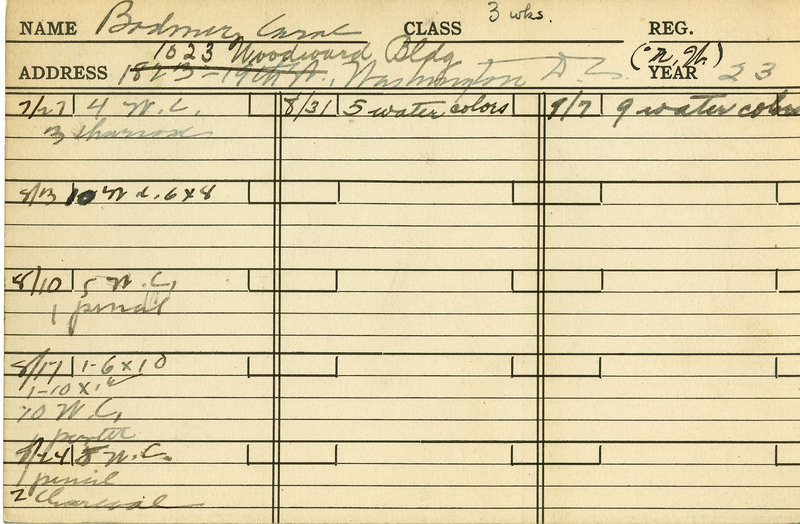 NAME Bodmer, Carol CLASS 3 wks. REG.
1023 Woodward Bldg
ADDRESS 1823-19th N., Washington D.C. YEAR 23
7/27 4 W.C.
3 charcoal
8/3 10 W.C. 6x8
8/10 5 W.C.
1 pencil
8/17 1-6x10
1-10x12
10 W.C.
8/24 5 W.C.
1 pencil
2 charcoal
8/31 5 water colors
9/7 9 water colors